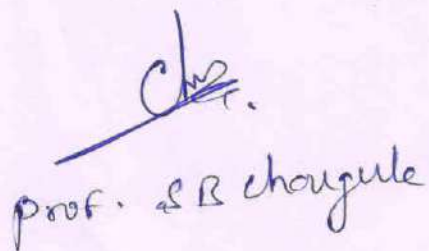 prof. SB chougule